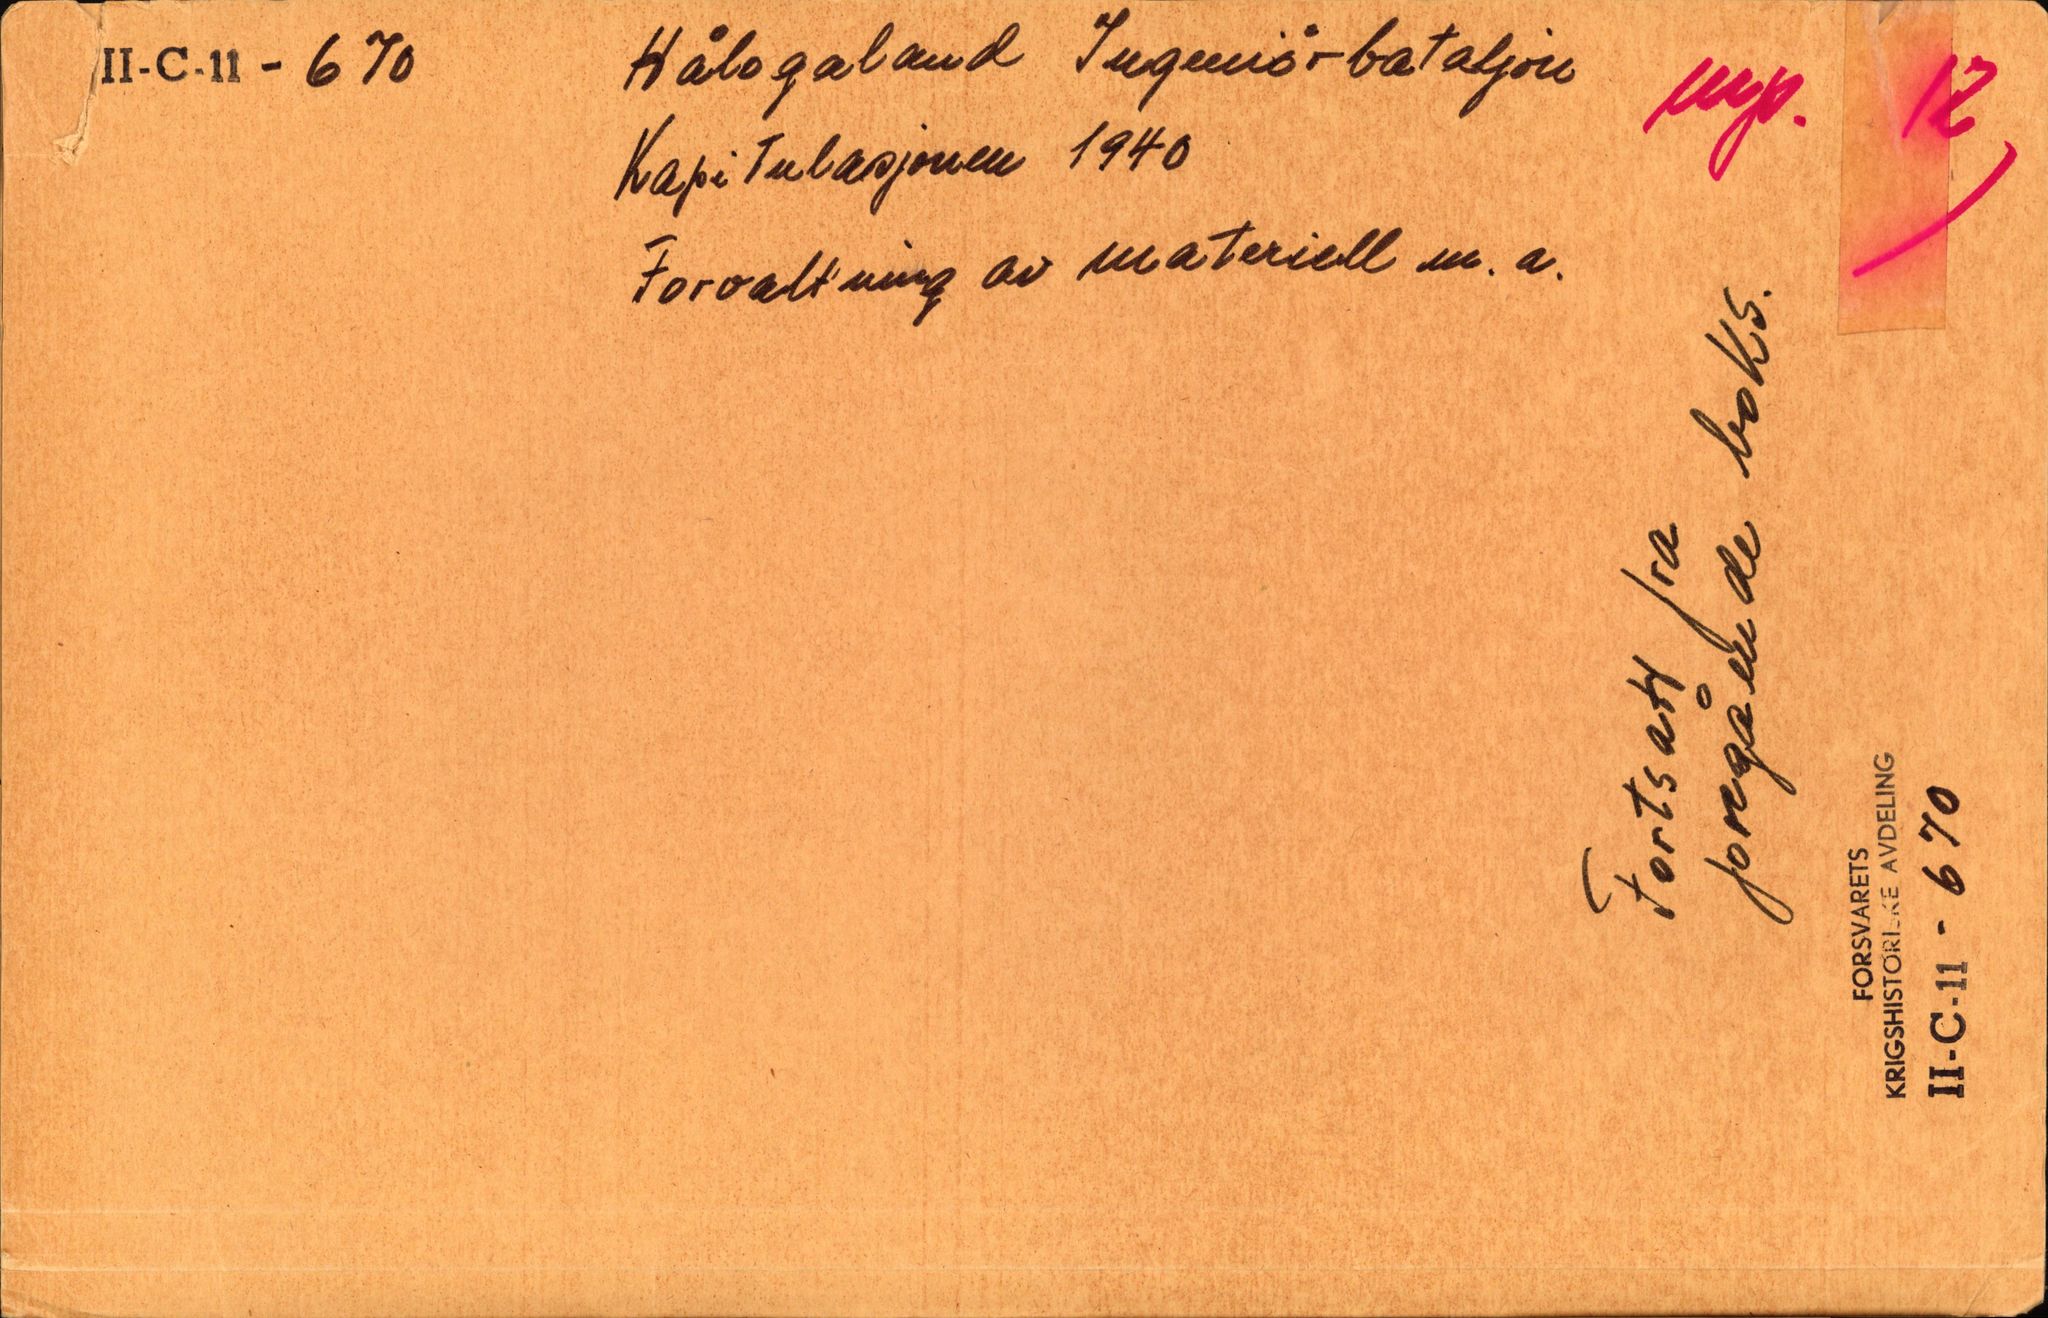 II-C-11 - 670
Hålogaland Ingeniør-bataljon
Kapitulasjonen 1940
Forvaltning av materiell m.a.
12
Fortsatt fra
foregående boks.
FORSVARETS
KRIGSHISTORISKE AVDELING
II-C-11 - 670